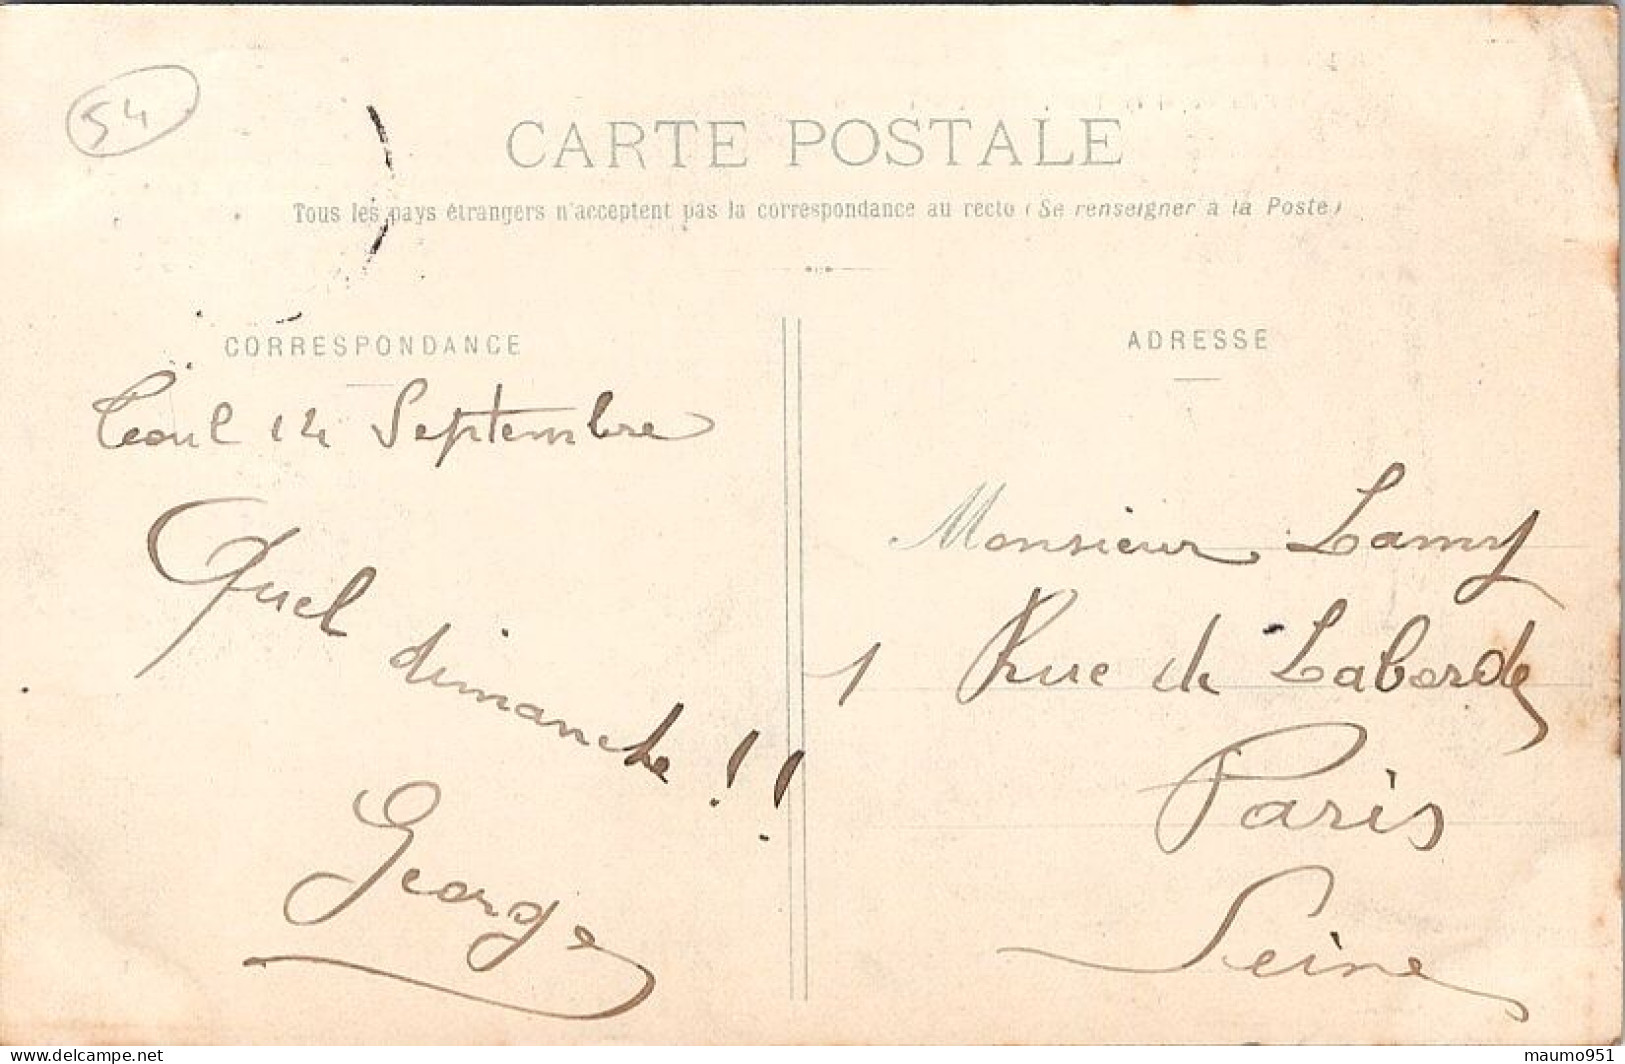 54
CARTE POSTALE
Tous les pays étrangers n'acceptent pas la correspondance au recto (Se renseigner à la Poste)
CORRESPONDANCE
Toul 14 Septembre
Quel dimanche !!
George
ADRESSE
Monsieur Lamy
1 Rue de Laborde
Paris
Seine
delcampe.net
maumo951